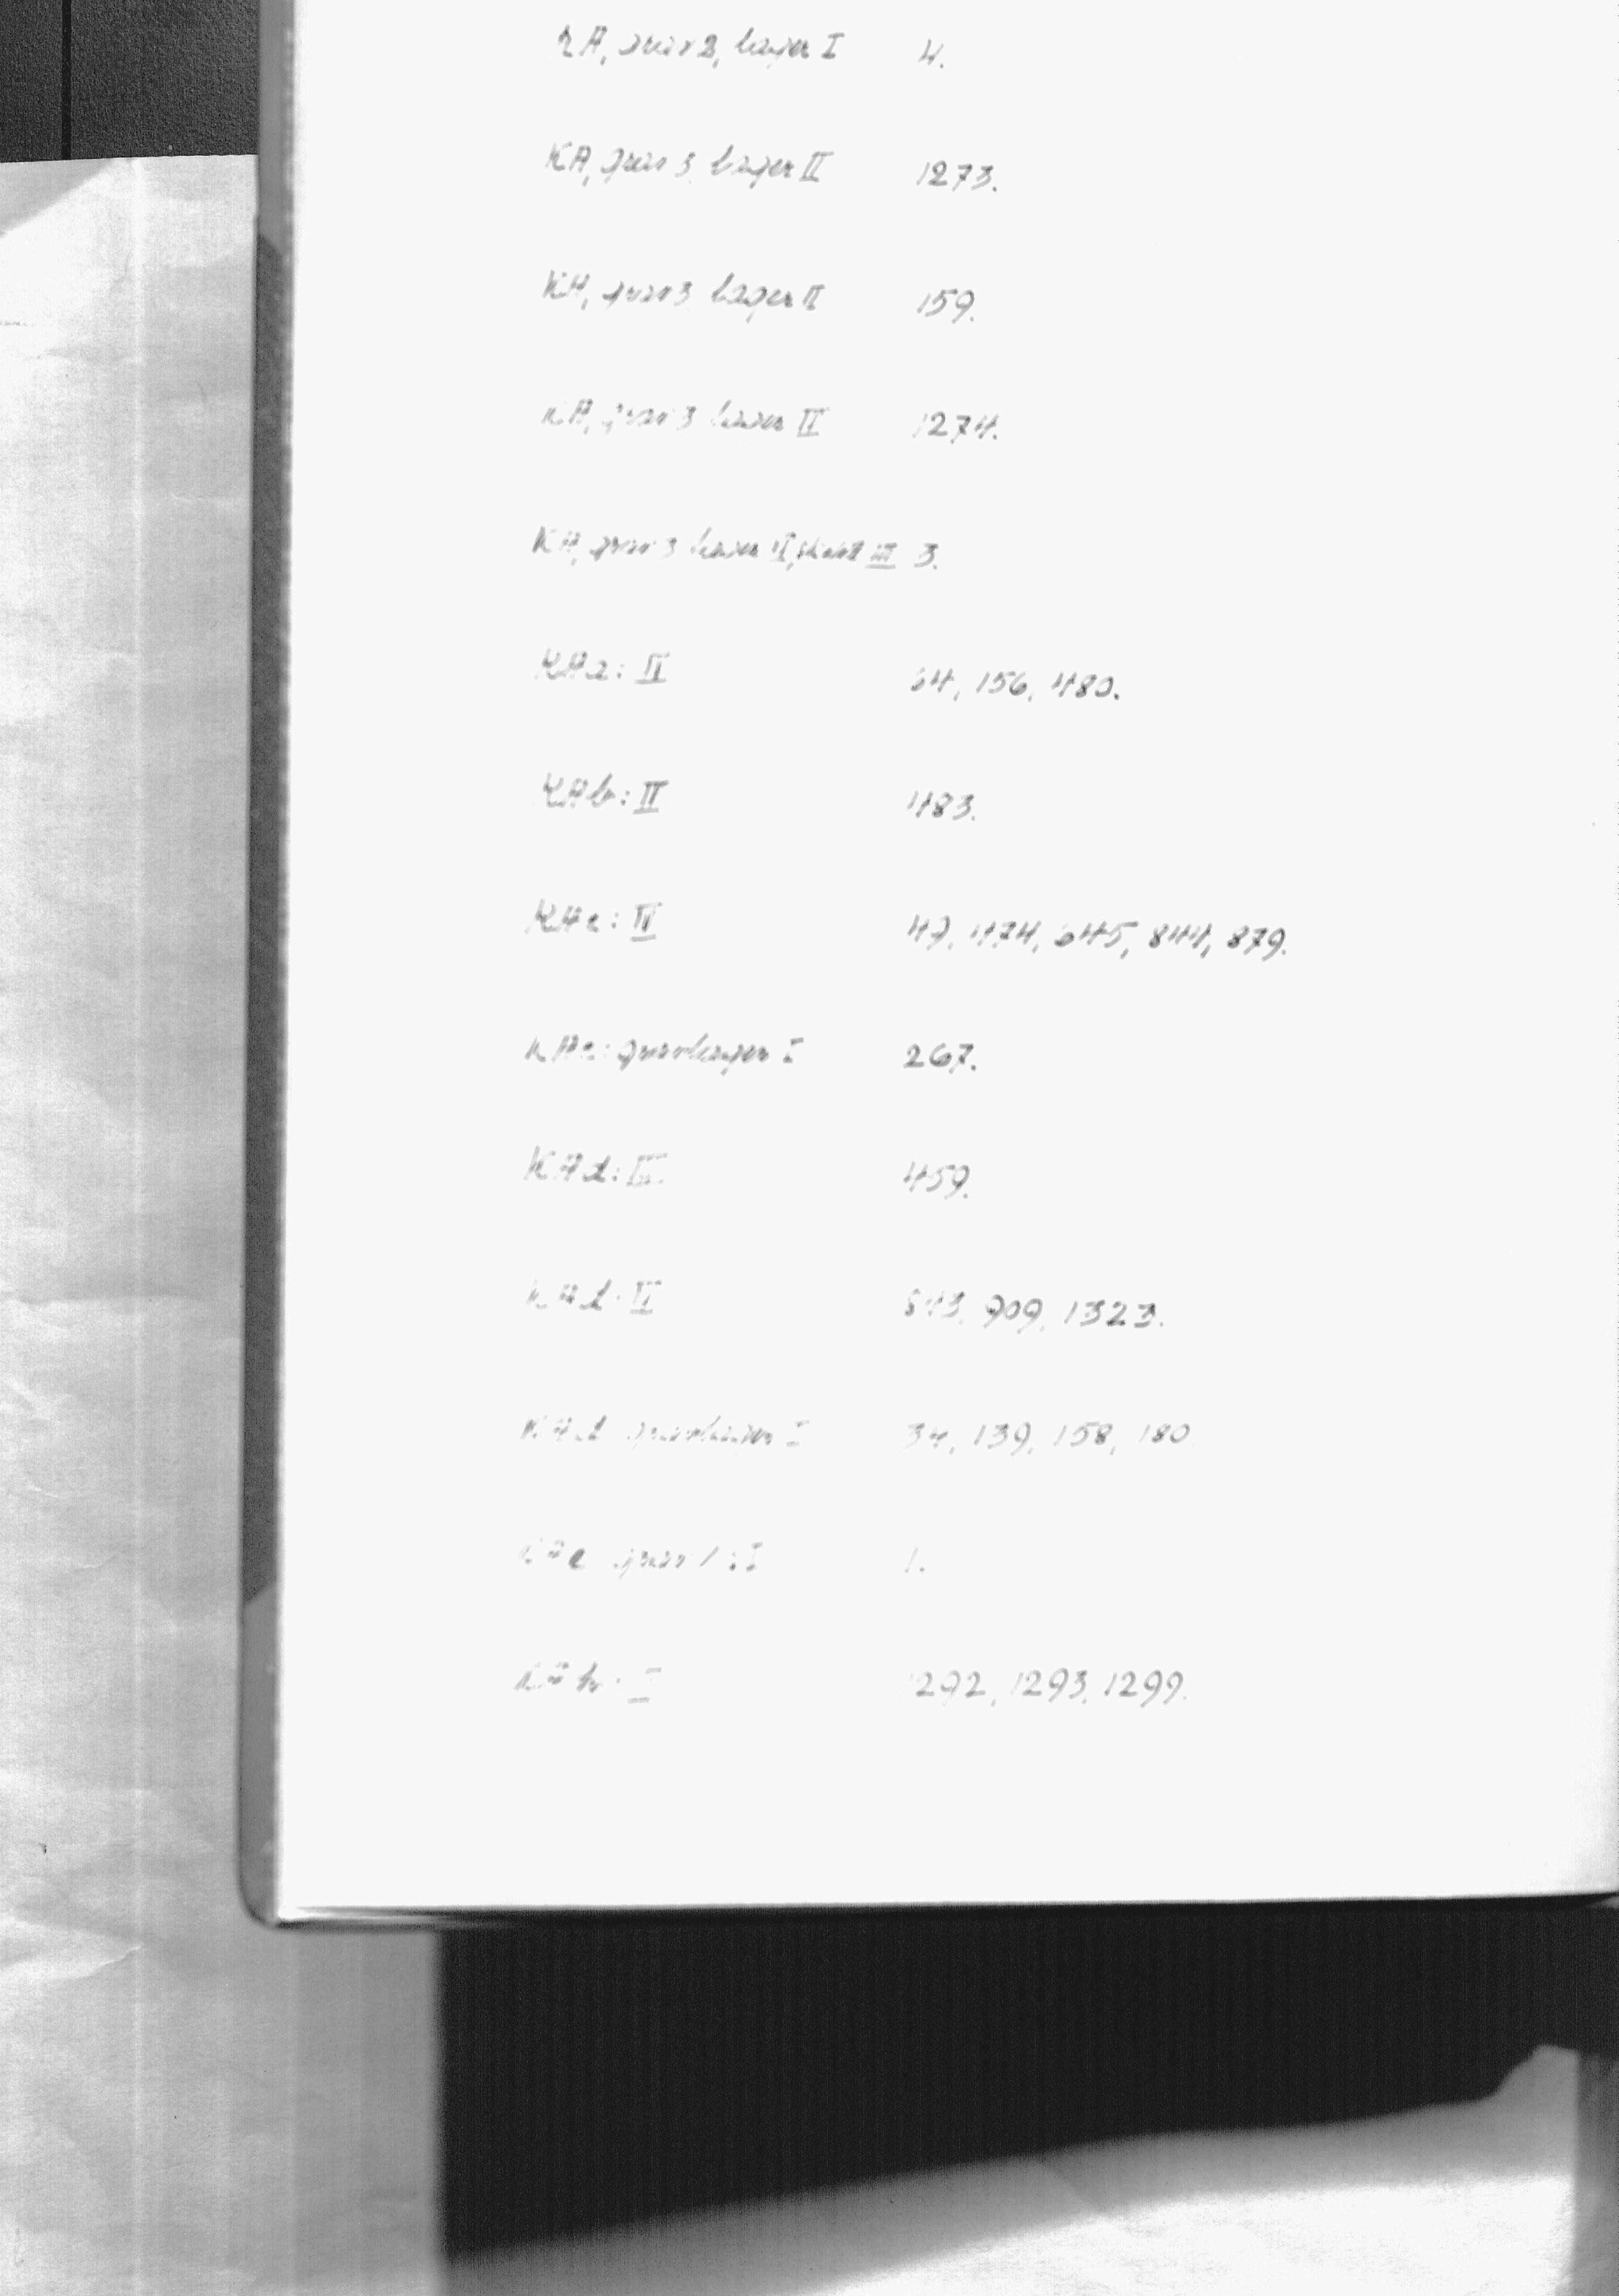 KA, grav 2, lager I 4.
KA, grav 3 lager II 1273.
KA, grav 3 lager II 159.
KA, grav 3 lager III 1274.
KA, grav 3 lager II, III 3.
KAa: II 64, 156, 480.
KAb: II 483.
KAc: II 49, 474, 645, 844, 879.
KAc: gravlager I 267.
KAd: III 459.
KAd: II 843, 909, 1323.
KAd gravlager I 34, 139, 158, 180
KAe grav 1: I 1.
KA I 1292, 1293, 1299.